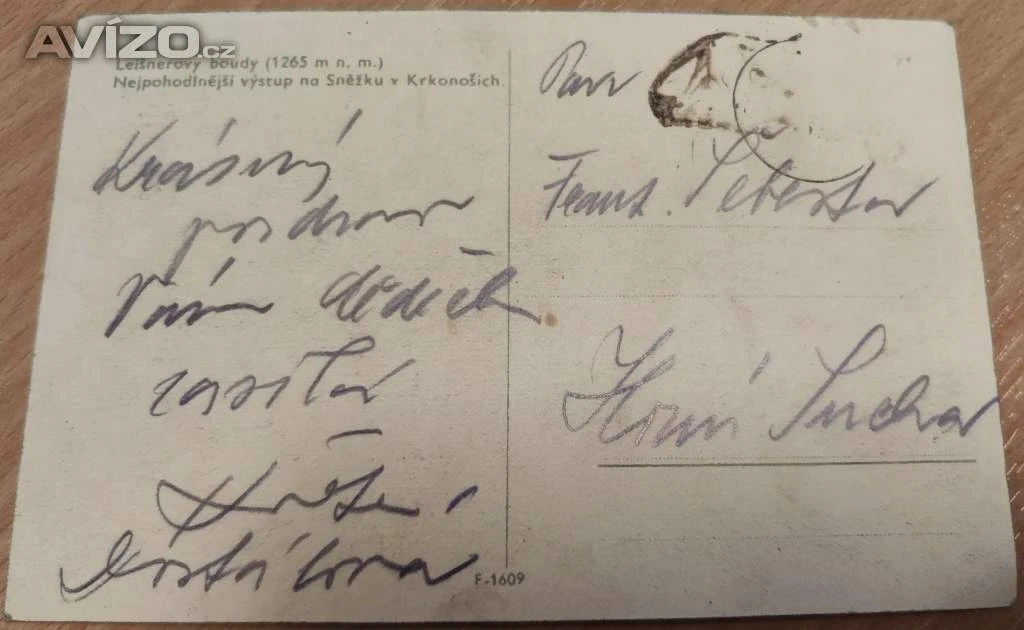 AVÍZO.cz
Leišnerovy boudy (1265 m n. m.)
Nejpohodlnější výstup na Sněžku v Krkonoších.
Krásný
pozdrav
Vám dědeček
zasílá
Dostálova
F-1609
Pan
Frant. Šebesta
Horní Suchá